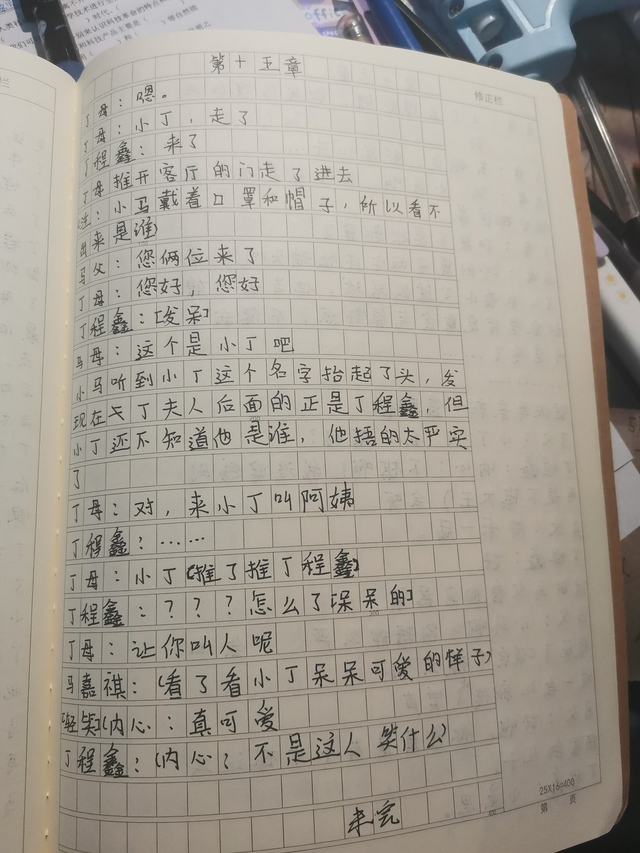 第十五章
修正栏
丁母：嗯。
丁母：小丁，走了
丁程鑫：来了
丁母推开客厅的门走了进去
(注：小马戴着口罩和帽子，所以看不
出来是谁)
马父：您俩位来了
丁母：您好，您好
丁程鑫：[发呆]
马母：这个是小丁吧
小马听到小丁这个名字抬起了头，发
现在丁夫人后面的正是丁程鑫，但
小丁还不知道他是谁，他捂的太严实
了
丁母：对，来小丁叫阿姨
丁程鑫：……
丁母：小丁[推了推丁程鑫]
丁程鑫：？？？怎么了[呆呆的]
丁母：让你叫人呢
马嘉祺：(看了看小丁呆呆可爱的样子)
[轻笑](内心：真可爱
丁程鑫：(内心：不是这人笑什么
未完
25X16=400
第 页